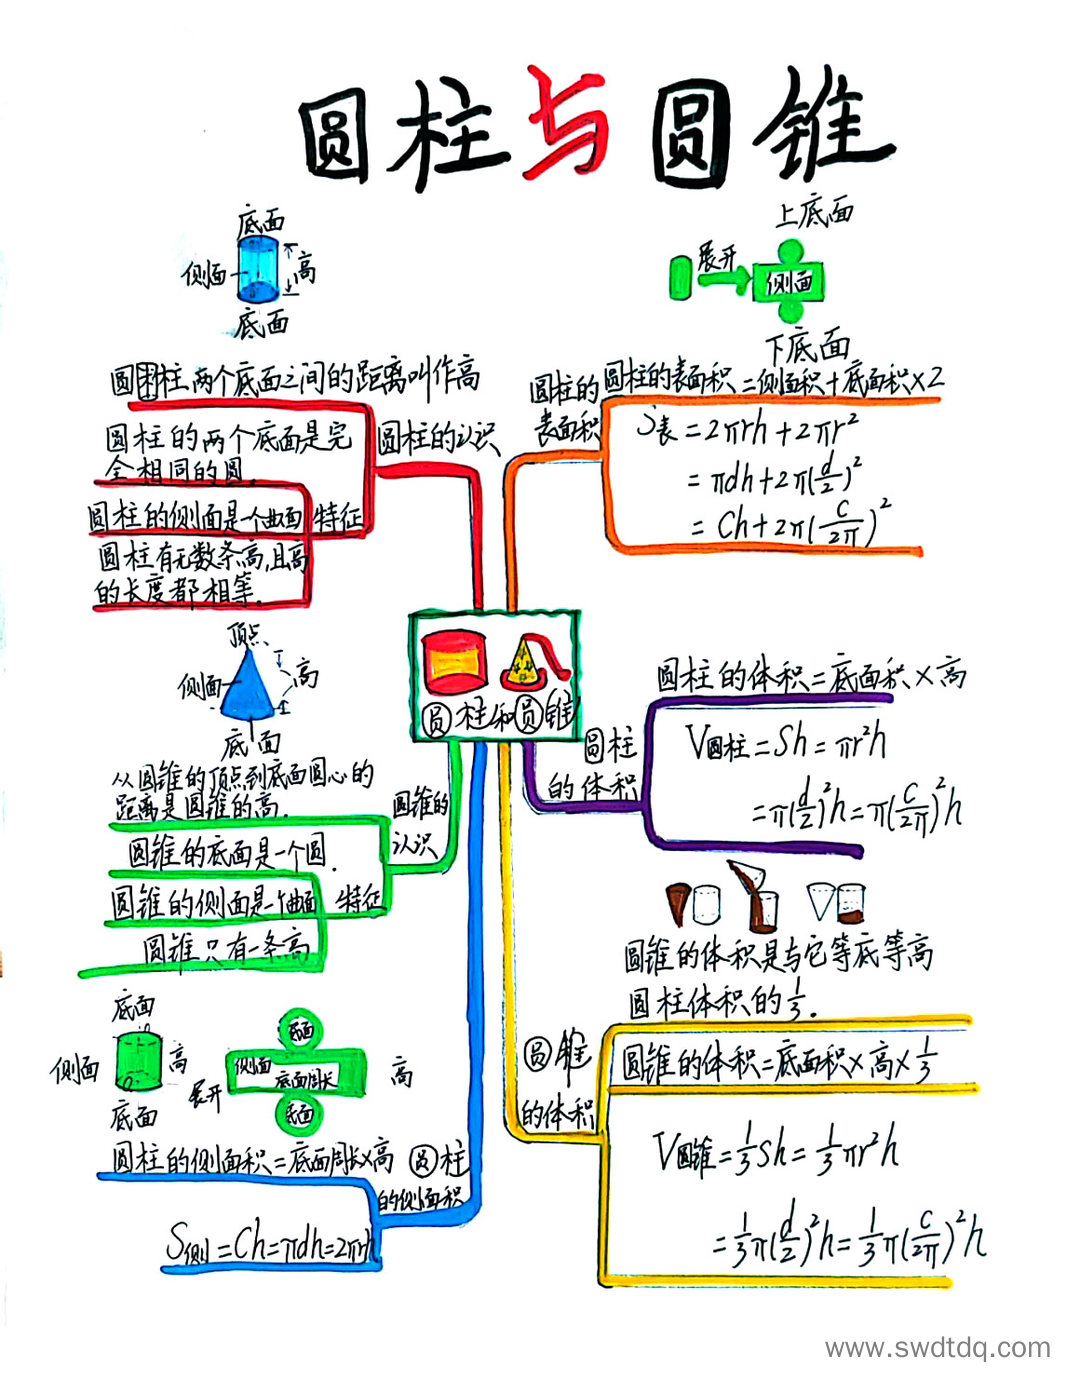 圆柱与圆锥
底面
侧面
高
底面
上底面
展开
侧面
下底面
圆柱两个底面之间的距离叫作高
圆柱的两个底面是完
全相同的圆.
圆柱的侧面是一个曲面
圆柱有无数条高,且高
的长度都相等.
特征
圆柱的认识
圆柱的
表面积
圆柱的表面积=侧面积+底面积×2
S表=2πrh+2πr²
=πdh+2π(d/2)²
=Ch+2π(C/2π)²
顶点
侧面
高
底面
从圆锥的顶点到底面圆心的
距离是圆锥的高.
圆锥的底面是一个圆.
圆锥的侧面是一个曲面
圆锥只有一条高
特征
圆锥的
认识
圆柱和圆锥
圆柱
的体积
圆柱的体积=底面积×高
V圆柱=Sh=πr²h
=π(d/2)²h=π(C/2π)²h
圆锥的体积是与它等底等高
圆柱体积的1/3.
圆锥
的体积
圆锥的体积=底面积×高×1/3
V圆锥=1/3Sh=1/3πr²h
=1/3π(d/2)²h=1/3π(C/2π)²h
底面
侧面
高
底面
展开
底面
侧面
底面周长
底面
高
圆柱的侧面积=底面周长×高
圆柱
的侧面积
S侧=Ch=πdh=2πrh
www.swdtdq.com